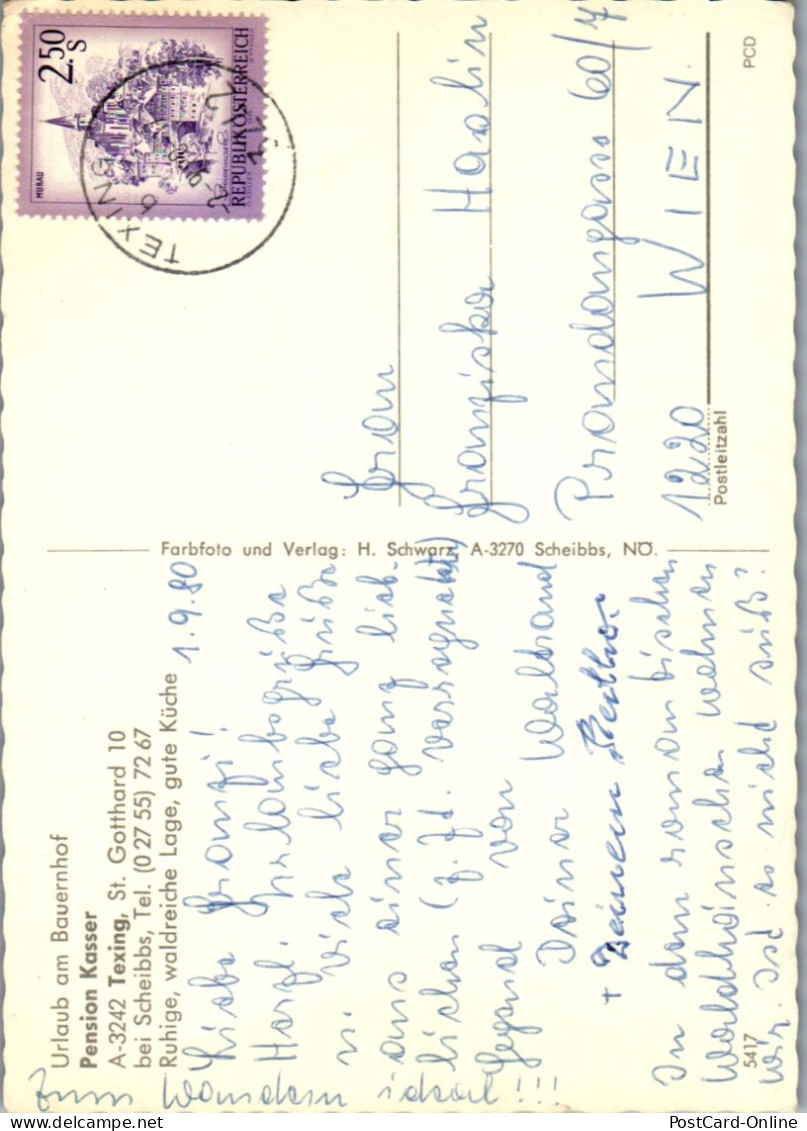 Urlaub am Bauernhof
Pension Kasser
A-3242 Texing, St. Gotthard 10
bei Scheibbs, Tel. (0 27 55) 72 67
Ruhige, waldreiche Lage, gute Küche
1.9.80
Liebe Franzi!
Herzl. Urlaubsgrüße
u. viele liebe Grüße
aus einer ganz lieb-
lichen (z. Zt. verregneten)
Gegend von
Waltraud
Deiner
+ Deinem Berthor
In dem romantischen
Waldhäuschen wohnen
wir. Ist es nicht süß?
Zum Wandern ideal!!!
5417
Farbfoto und Verlag: H. Schwarz, A-3270 Scheibbs, NÖ.
2.50
S
MURAU
REPUBLIK ÖSTERREICH
TEXING
Frau
Franziska Haslin
Prandaugasse 60/7
1220 WIEN
Postleitzahl
PCD
PostCard-Online
PostCard-Online